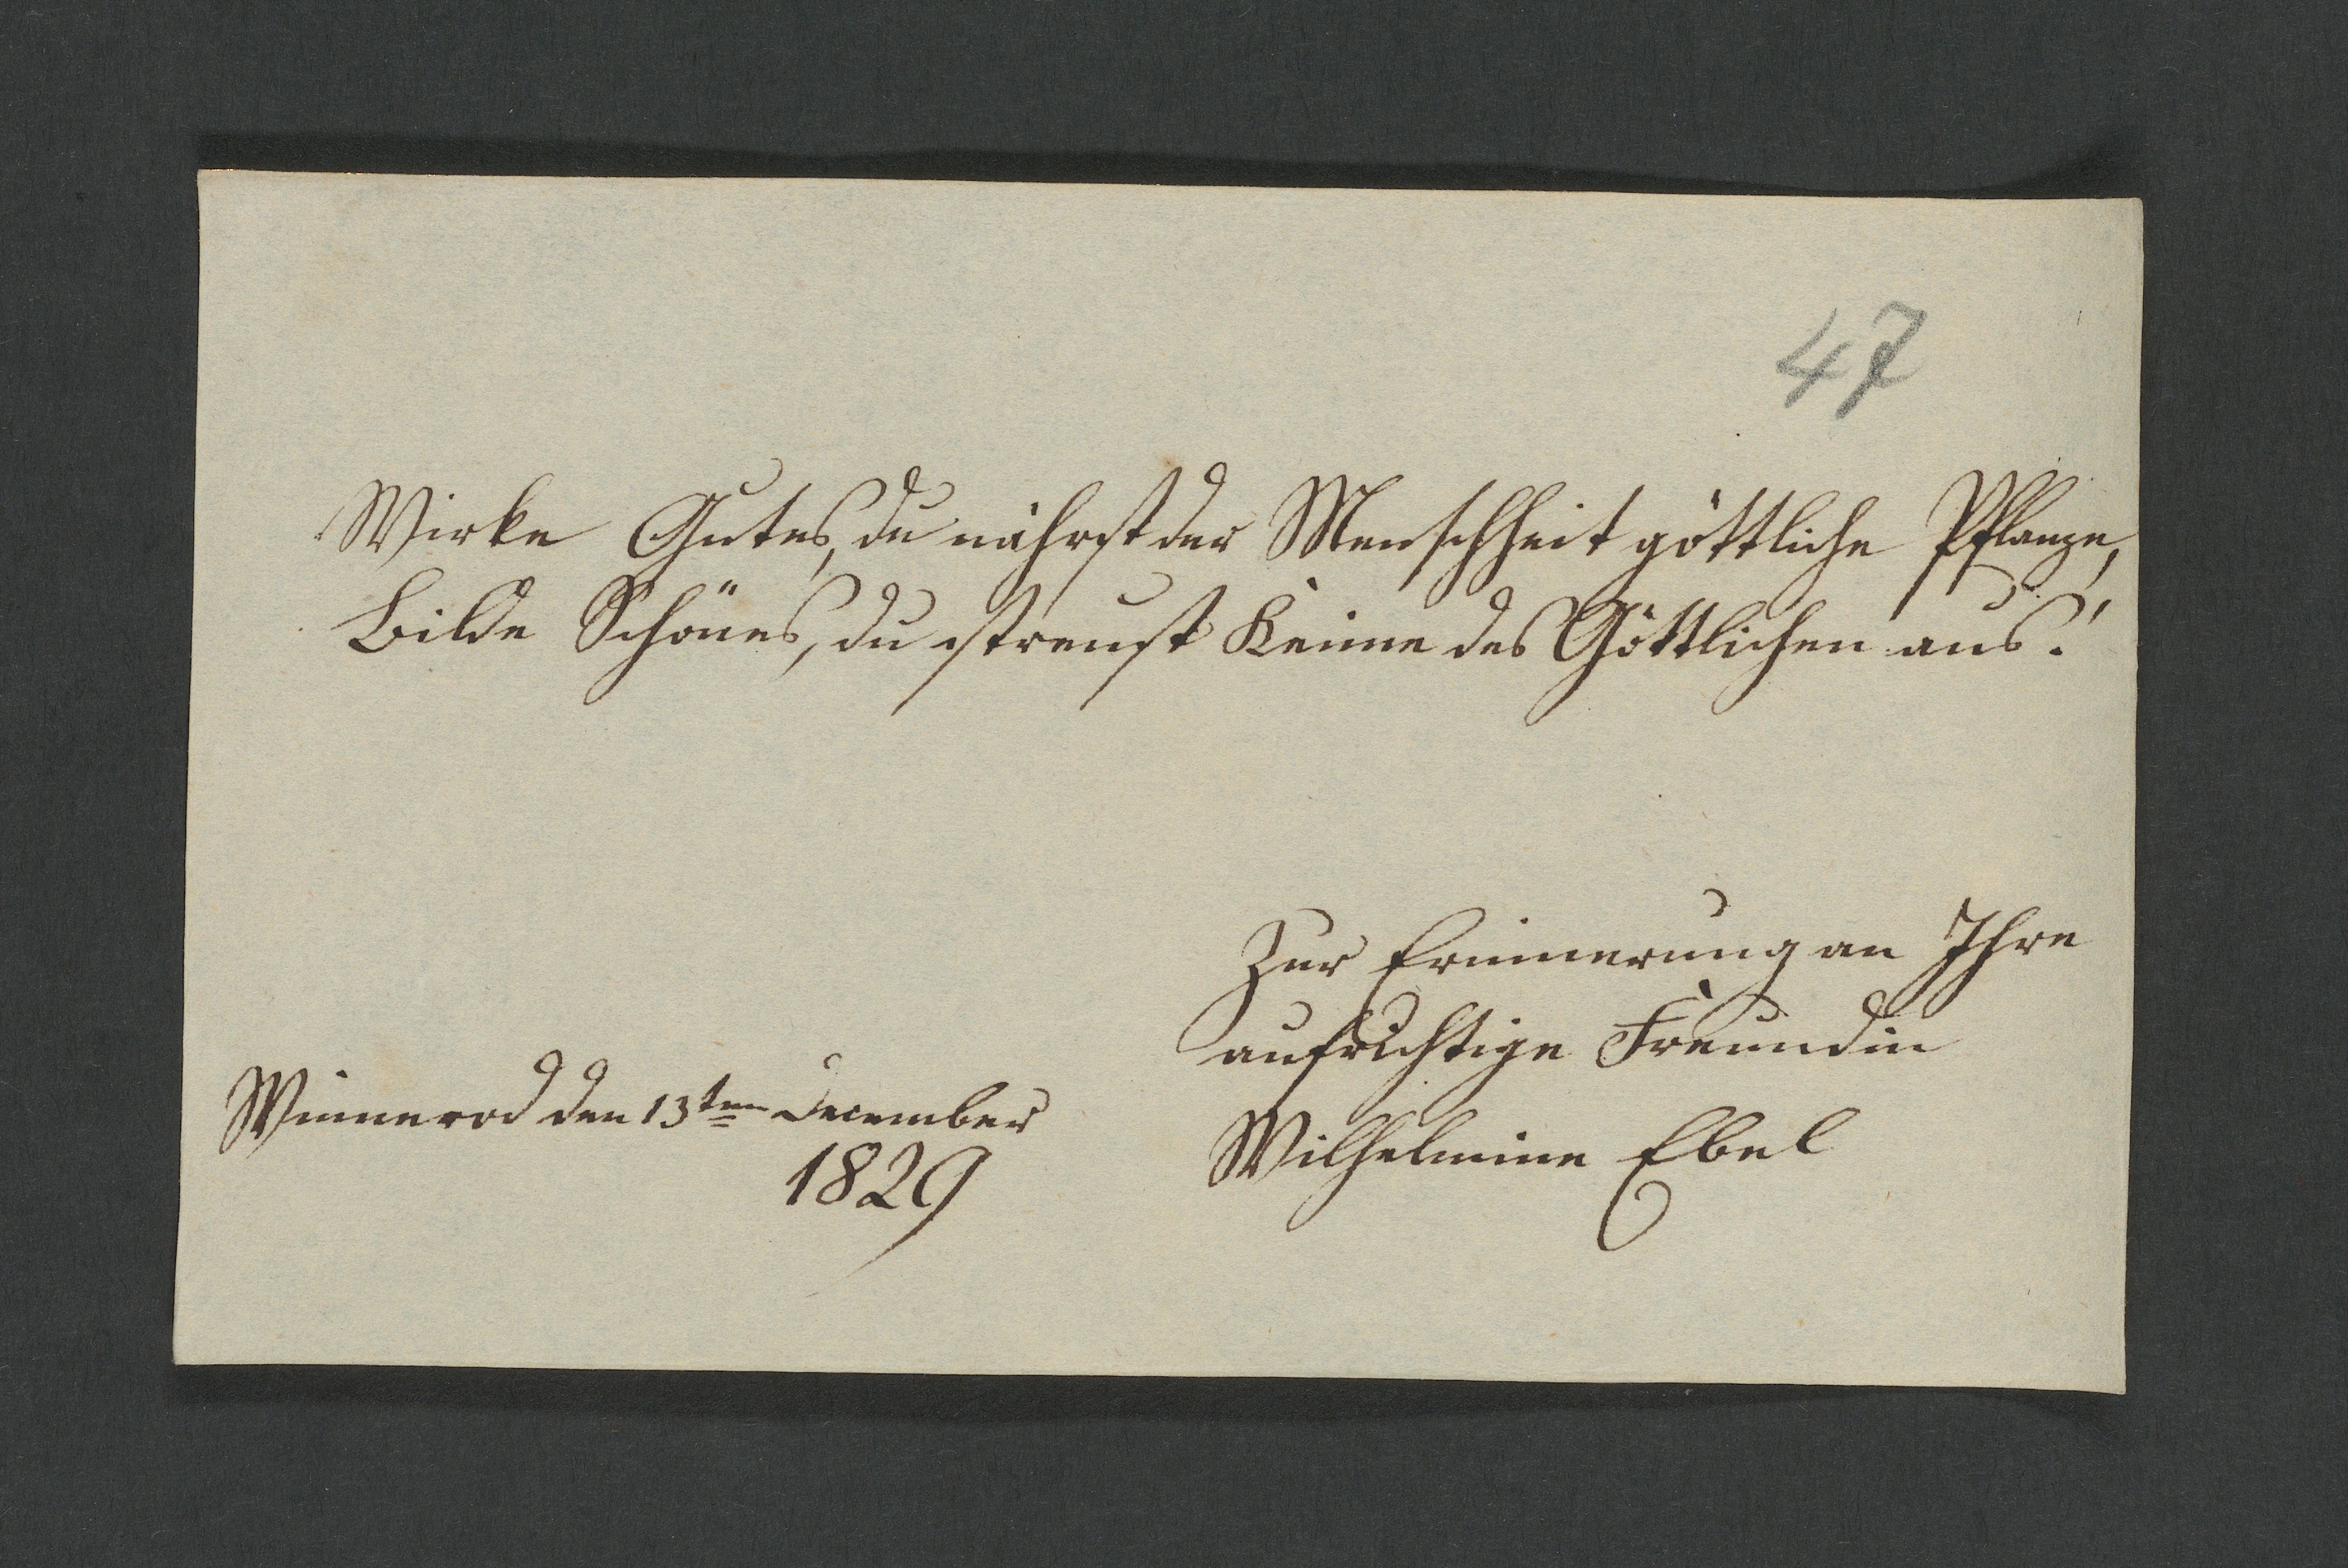 47
Wirke Gutes, du nährst der Menschheit göttliche Pflanze,
Bilde Schönes, du streust Keime des Göttlichen aus!
Zur Erinnerung an Ihre
aufrichtige Freundin
Wilhelmine Ebel
Winnerod den 13ten December
1829